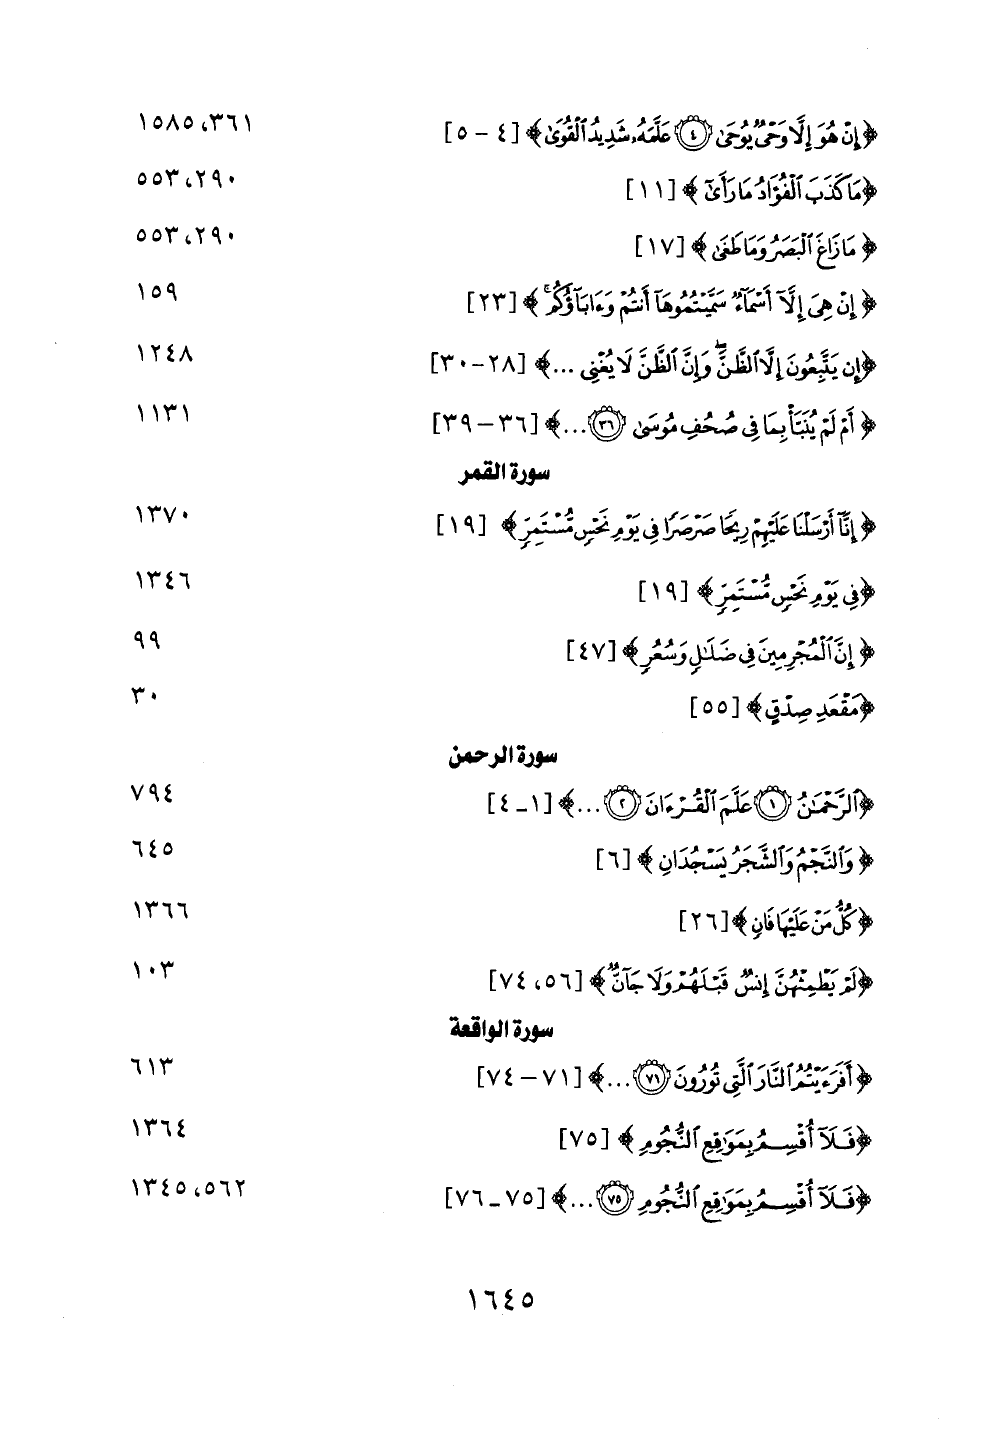 ﴿إِنْ هُوَ إِلَّا وَحْىٌ يُوحَىٰ ٤ عَلَّمَهُۥ شَدِيدُ ٱلْقُوَىٰ﴾ [٤ – ٥] ٣٦١، ١٥٨٥
﴿مَا كَذَبَ ٱلْفُؤَادُ مَا رَأَىٰٓ﴾ [١١] ٢٩٠، ٥٥٣
﴿مَا زَاغَ ٱلْبَصَرُ وَمَا طَغَىٰ﴾ [١٧] ٢٩٠، ٥٥٣
﴿إِنْ هِىَ إِلَّآ أَسْمَآءٌ سَمَّيْتُمُوهَآ أَنتُمْ وَءَابَآؤُكُم﴾ [٢٣] ١٥٩
﴿إِن يَتَّبِعُونَ إِلَّا ٱلظَّنَّ ۖ وَإِنَّ ٱلظَّنَّ لَا يُغْنِى ...﴾ [٢٨ – ٣٠] ١٢٤٨
﴿أَمْ لَمْ يُنَبَّأْ بِمَا فِى صُحُفِ مُوسَىٰ ٣٦ ...﴾ [٣٦ – ٣٩] ١١٣١
سورة القمر
﴿إِنَّآ أَرْسَلْنَا عَلَيْهِمْ رِيحًا صَرْصَرًا فِى يَوْمِ نَحْسٍ مُّسْتَمِرٍّ﴾ [١٩] ١٣٧٠
﴿فِى يَوْمِ نَحْسٍ مُّسْتَمِرٍّ﴾ [١٩] ١٣٤٦
﴿إِنَّ ٱلْمُجْرِمِينَ فِى ضَلَـٰلٍ وَسُعُرٍ﴾ [٤٧] ٩٩
﴿مَقْعَدِ صِدْقٍ﴾ [٥٥] ٣٠
سورة الرحمن
﴿ٱلرَّحْمَـٰنُ ١ عَلَّمَ ٱلْقُرْءَانَ ٢ ...﴾ [١ ـ ٤] ٧٩٤
﴿وَٱلنَّجْمُ وَٱلشَّجَرُ يَسْجُدَانِ﴾ [٦] ٦٤٥
﴿كُلُّ مَنْ عَلَيْهَا فَانٍ﴾ [٢٦] ١٣٦٦
﴿لَمْ يَطْمِثْهُنَّ إِنسٌ قَبْلَهُمْ وَلَا جَآنٌّ﴾ [٥٦، ٧٤] ١٠٣
سورة الواقعة
﴿أَفَرَءَيْتُمُ ٱلنَّارَ ٱلَّتِى تُورُونَ ٧١ ...﴾ [٧١ – ٧٤] ٦١٣
﴿فَلَآ أُقْسِمُ بِمَوَٰقِعِ ٱلنُّجُومِ﴾ [٧٥] ١٣٦٤
﴿فَلَآ أُقْسِمُ بِمَوَٰقِعِ ٱلنُّجُومِ ٧٥ ...﴾ [٧٥ ـ ٧٦] ٥٦٢، ١٣٤٥
١٦٤٥